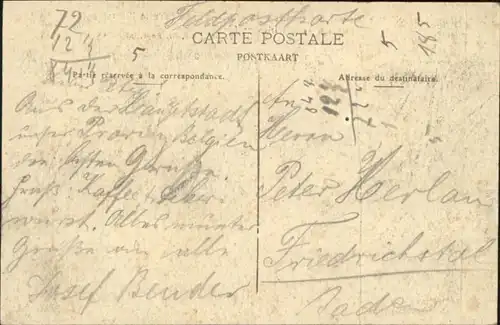 Feldpostkarte
72
12
5
CARTE POSTALE
POSTKAART
5
185
Partie réservée à la correspondance.
Adresse du destinataire.
Aus der Hauptstadt
unser Provinz Belgien
die besten Grüße.
Kaffee Leber
wurst. Alles munter
Grüße an alle
Josef Bender
An
Herrn
Peter Herlan
Friedrichstal
Baden